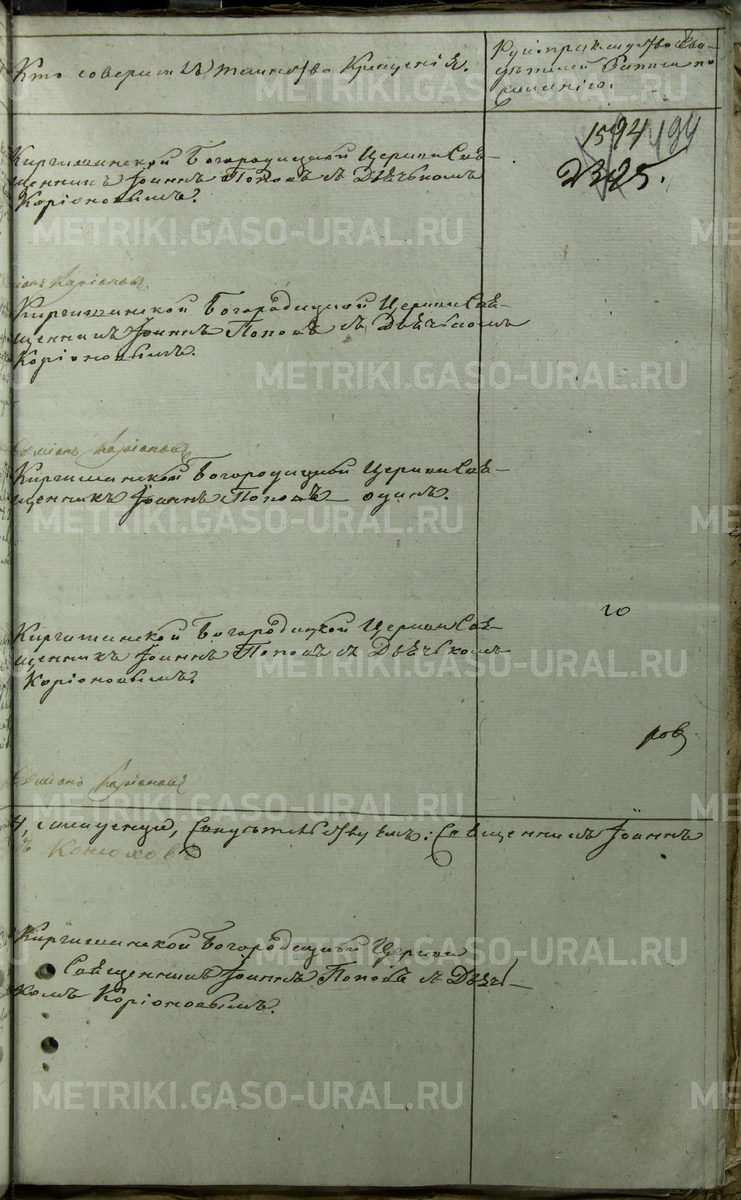 Кто совершалъ таинство Крещенія.
Рукоприкладство Сви-
дѣтелей Записи по
желанію.
1594 194
2325.
Киргишинской Богородицкой Церкви Свя-
щенникъ Іоаннъ Поповъ съ Дьячькомъ
Коріоновымъ.
Киргишинской Богородицкой Церкви Свя-
щенникъ Іоаннъ Поповъ съ Дьячькомъ
Коріоновымъ.
Киргишинской Богородицкой Церкви Свя-
щенникъ Іоаннъ Поповъ одинъ.
Киргишинской Богородицкой Церкви Свя-
щенникъ Іоаннъ Поповъ съ Дьячькомъ
Коріоновымъ.
го
ровъ
Священникъ Іоаннъ
Киргишинской Богородицкой Церкви
Священникъ Іоаннъ Поповъ съ Дьячь-
комъ Коріоновымъ.
METRIKI.GASO-URAL.RU